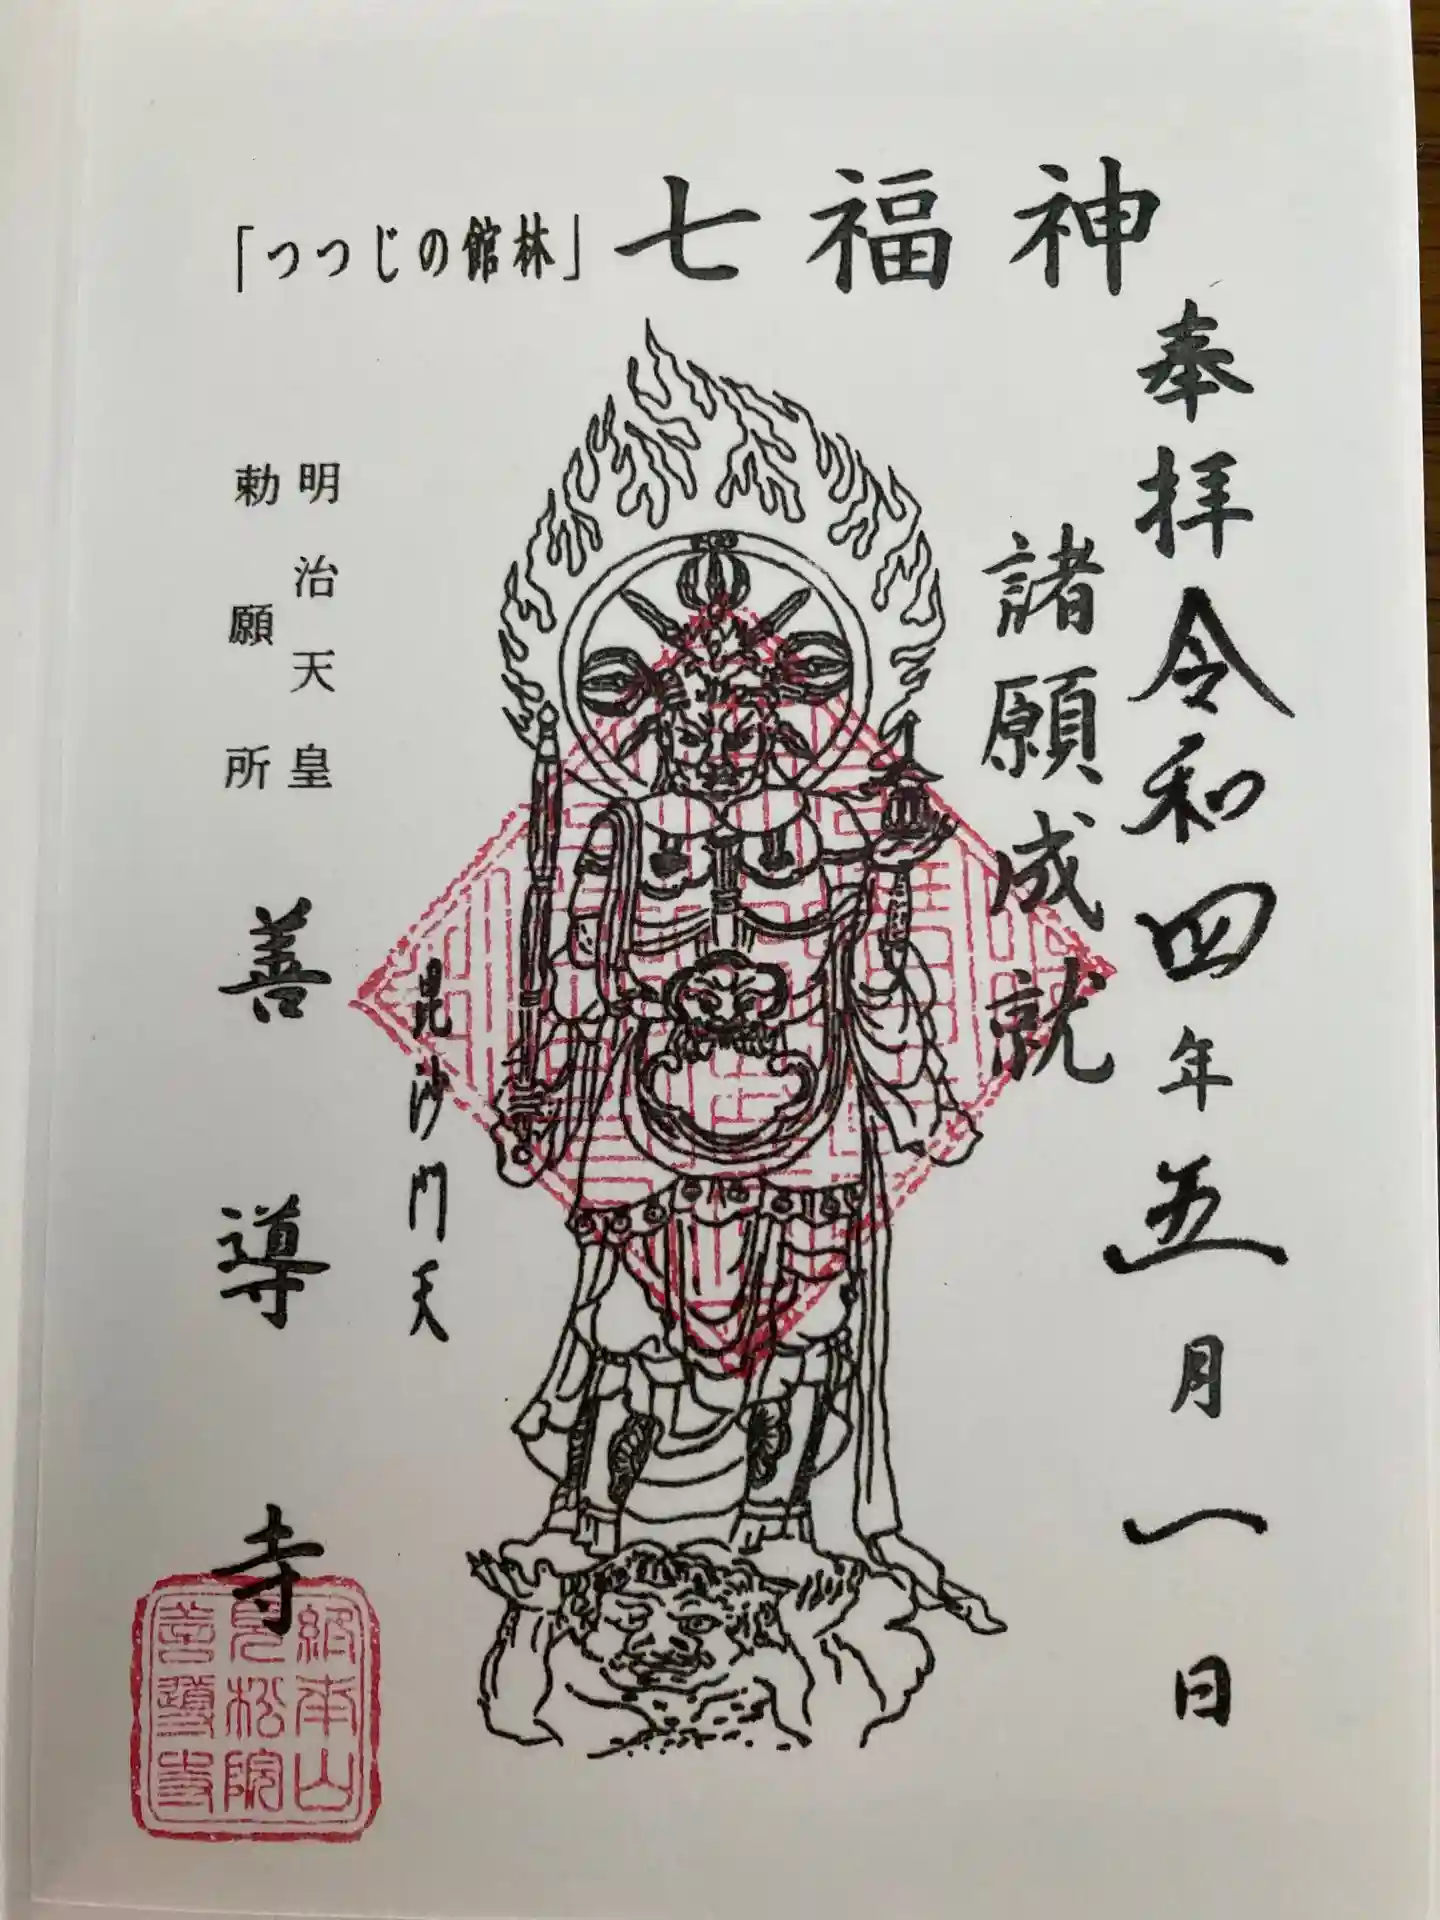 「つつじの館林」七福神
奉拝 令和四年五月一日
諸願成就
毘沙門天
明治天皇
勅願所
善導寺
終南山
見松院
善導寺